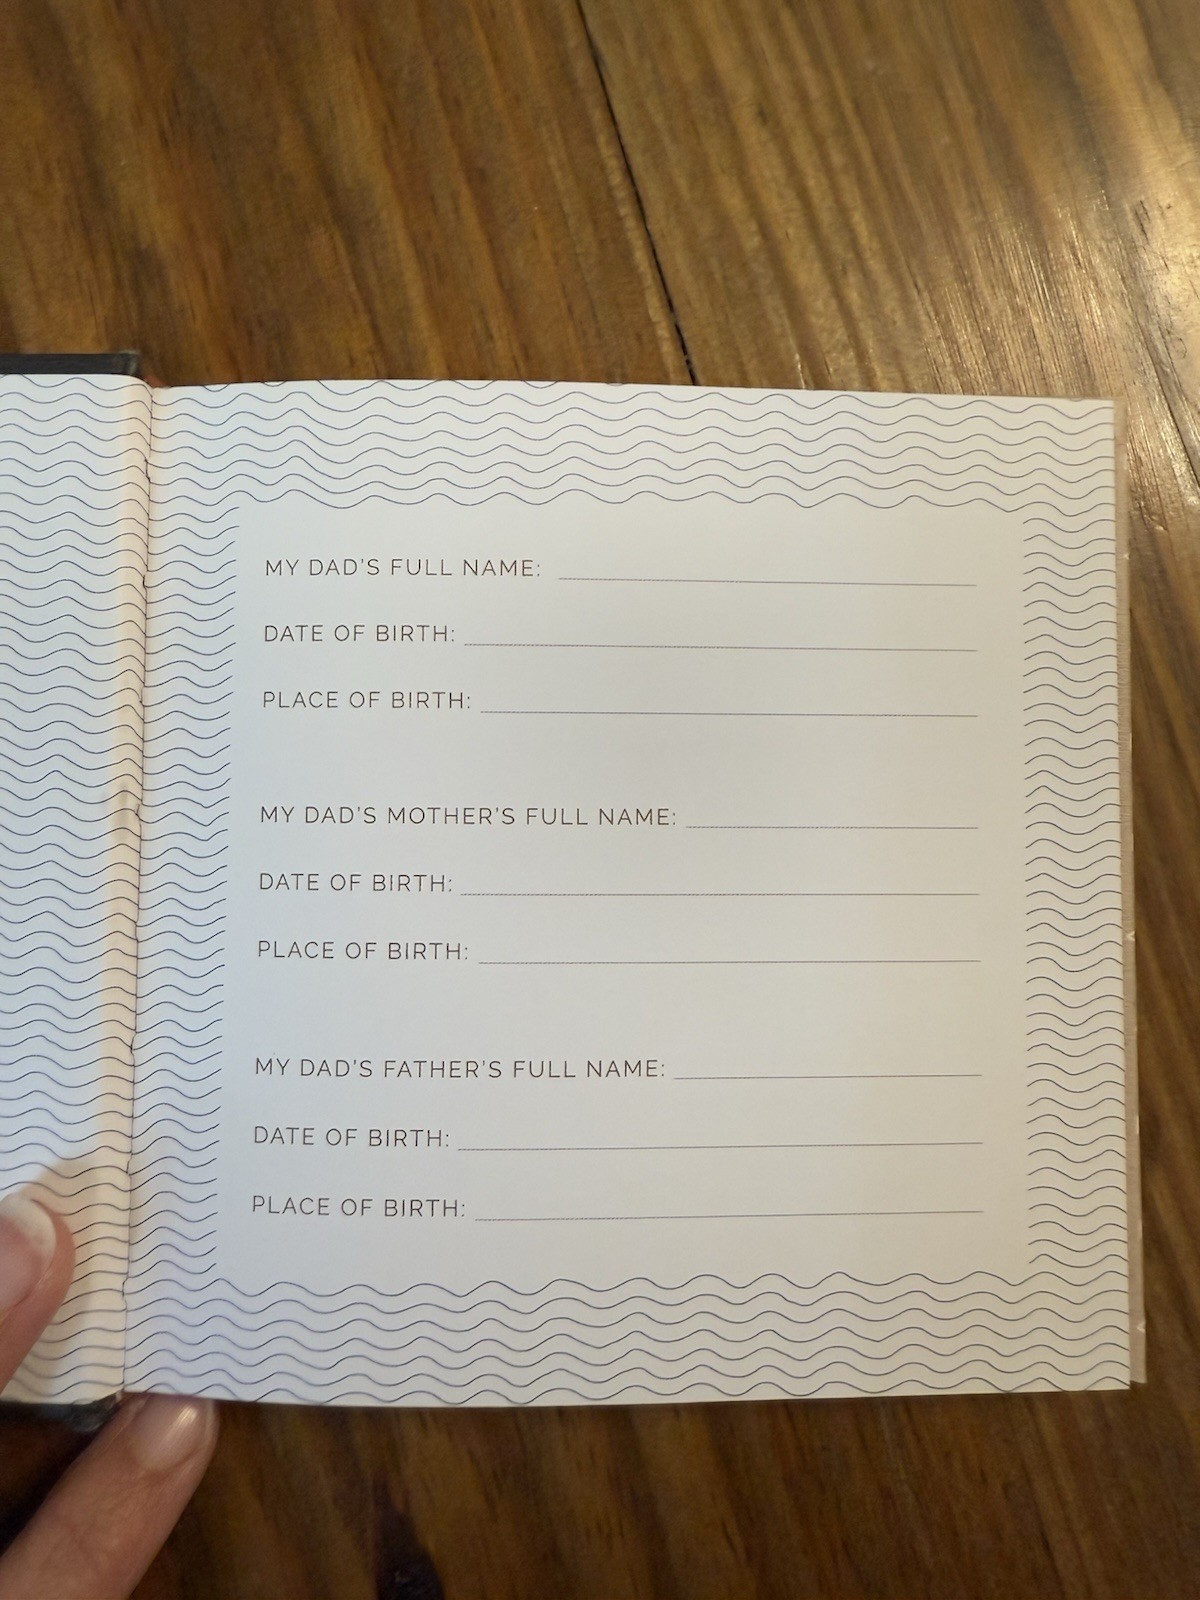 MY DAD'S FULL NAME:
DATE OF BIRTH:
PLACE OF BIRTH:
MY DAD'S MOTHER'S FULL NAME:
DATE OF BIRTH:
PLACE OF BIRTH:
MY DAD'S FATHER'S FULL NAME:
DATE OF BIRTH:
PLACE OF BIRTH: